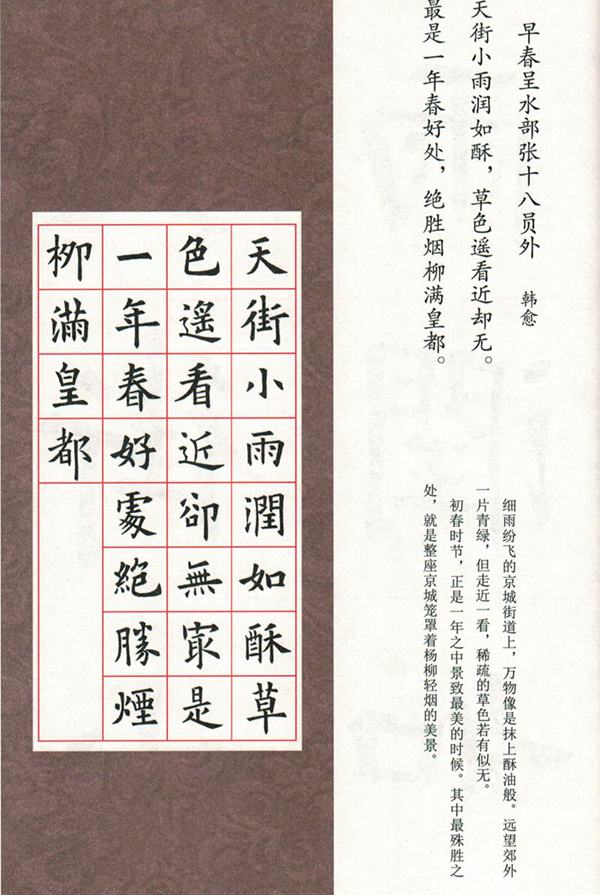 早春呈水部张十八员外 韩愈
天街小雨润如酥，草色遥看近却无。
最是一年春好处，绝胜烟柳满皇都。
细雨纷飞的京城街道上，万物像是抹上酥油般。远望郊外
一片青绿，但走近一看，稀疏的草色若有似无。
初春时节，正是一年之中景致最美的时候。其中最殊胜之
处，就是整座京城笼罩着杨柳轻烟的美景。
天街小雨潤如酥草
色遥看近卻無㝡是
一年春好處絶勝煙
柳滿皇都